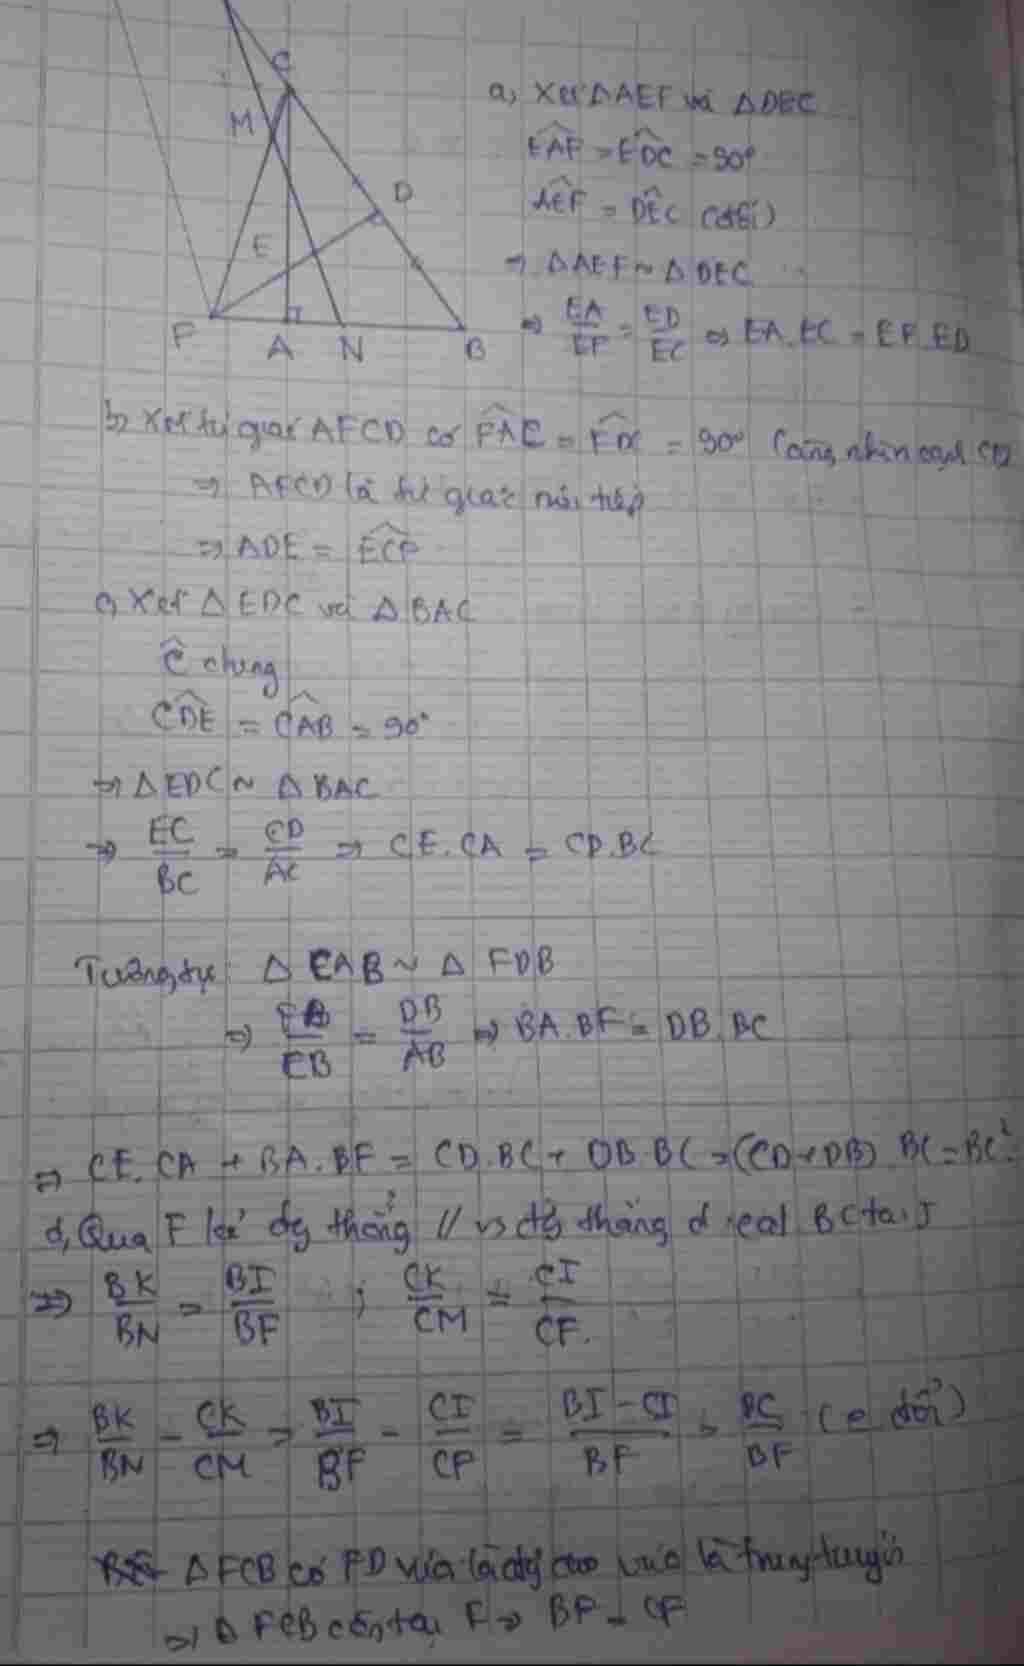 C
M
D
E
F A N B
a, Xét ΔAEF và ΔDEC
EAF = EDC = 90°
AEF = DEC (đối)
=> ΔAEF ~ ΔDEC
=> EA/EF = ED/EC => EA.EC = EF.ED
b, Xét tứ giác AFCD có FAC = FDC = 90° (cùng nhìn cạnh
=> AFCD là tứ giác nội tiếp
=> ADE = ECF
c, Xét ΔEDC và ΔBAC
C chung
CDE = CAB = 90°
=> ΔEDC ~ ΔBAC
=> EC/BC = CD/AC => CE.CA = CD.BC
Tương tự: Δ CAB ~ Δ FDB
=> FB/CB = DB/AB => BA.BF = DB.BC
=> CE.CA + BA.BF = CD.BC + DB.BC = (CD+DB).BC = BC²
d, Qua F kẻ đg thẳng // vs đg thẳng d cắt BC tại I
=> BK/BN = BI/BF ; CK/CM = CI/CF.
=> BK/BN - CK/CM = BI/BF - CI/CF = BI-CI/BF = BC/BF (o đổi)
Δ FCB có FD vừa là đg cao vừa là trung tuyến
=> Δ FCB cân tại F => BF = CF